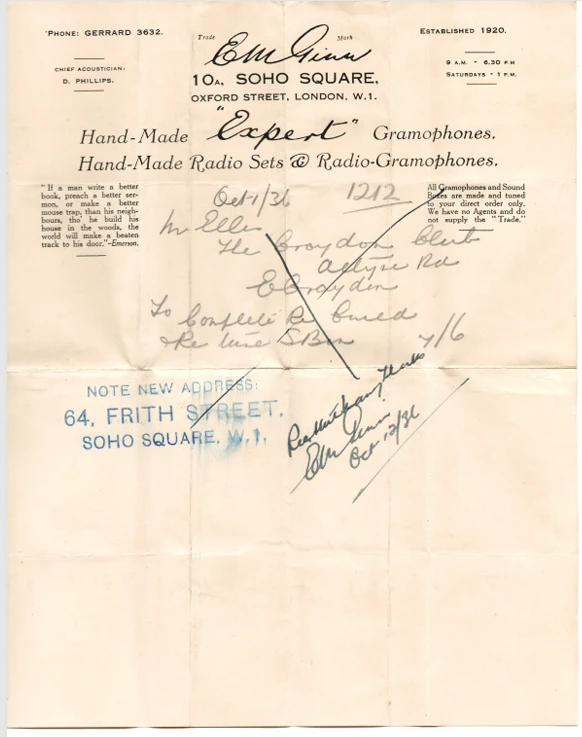 'PHONE: GERRARD 3632.
Trade Mark
ESTABLISHED 1920.
E M Ginn
CHIEF ACOUSTICIAN:
D. PHILLIPS.
9 A.M. - 6.30 P.M
SATURDAYS - 1 P.M.
10A, SOHO SQUARE,
OXFORD STREET, LONDON, W.1.
Hand-Made "Expert" Gramophones.
Hand-Made Radio Sets & Radio-Gramophones.
"If a man write a better
book, preach a better ser-
mon, or make a better
mouse trap, than his neigh-
bours, tho' he build his
house in the woods, the
world will make a beaten
track to his door."-Emerson.
All Gramophones and Sound
Boxes are made and tuned
to your direct order only.
We have no Agents and do
not supply the "Trade."
Oct 1/36 1212
Mr Ellis
The Croydon Club
Rd
E Croydon
To Complete Re
Re tune S Box 7/6
NOTE NEW ADDRESS:
64, FRITH STREET,
SOHO SQUARE, W.1.
Thanks
E M Ginn
Oct 12/36